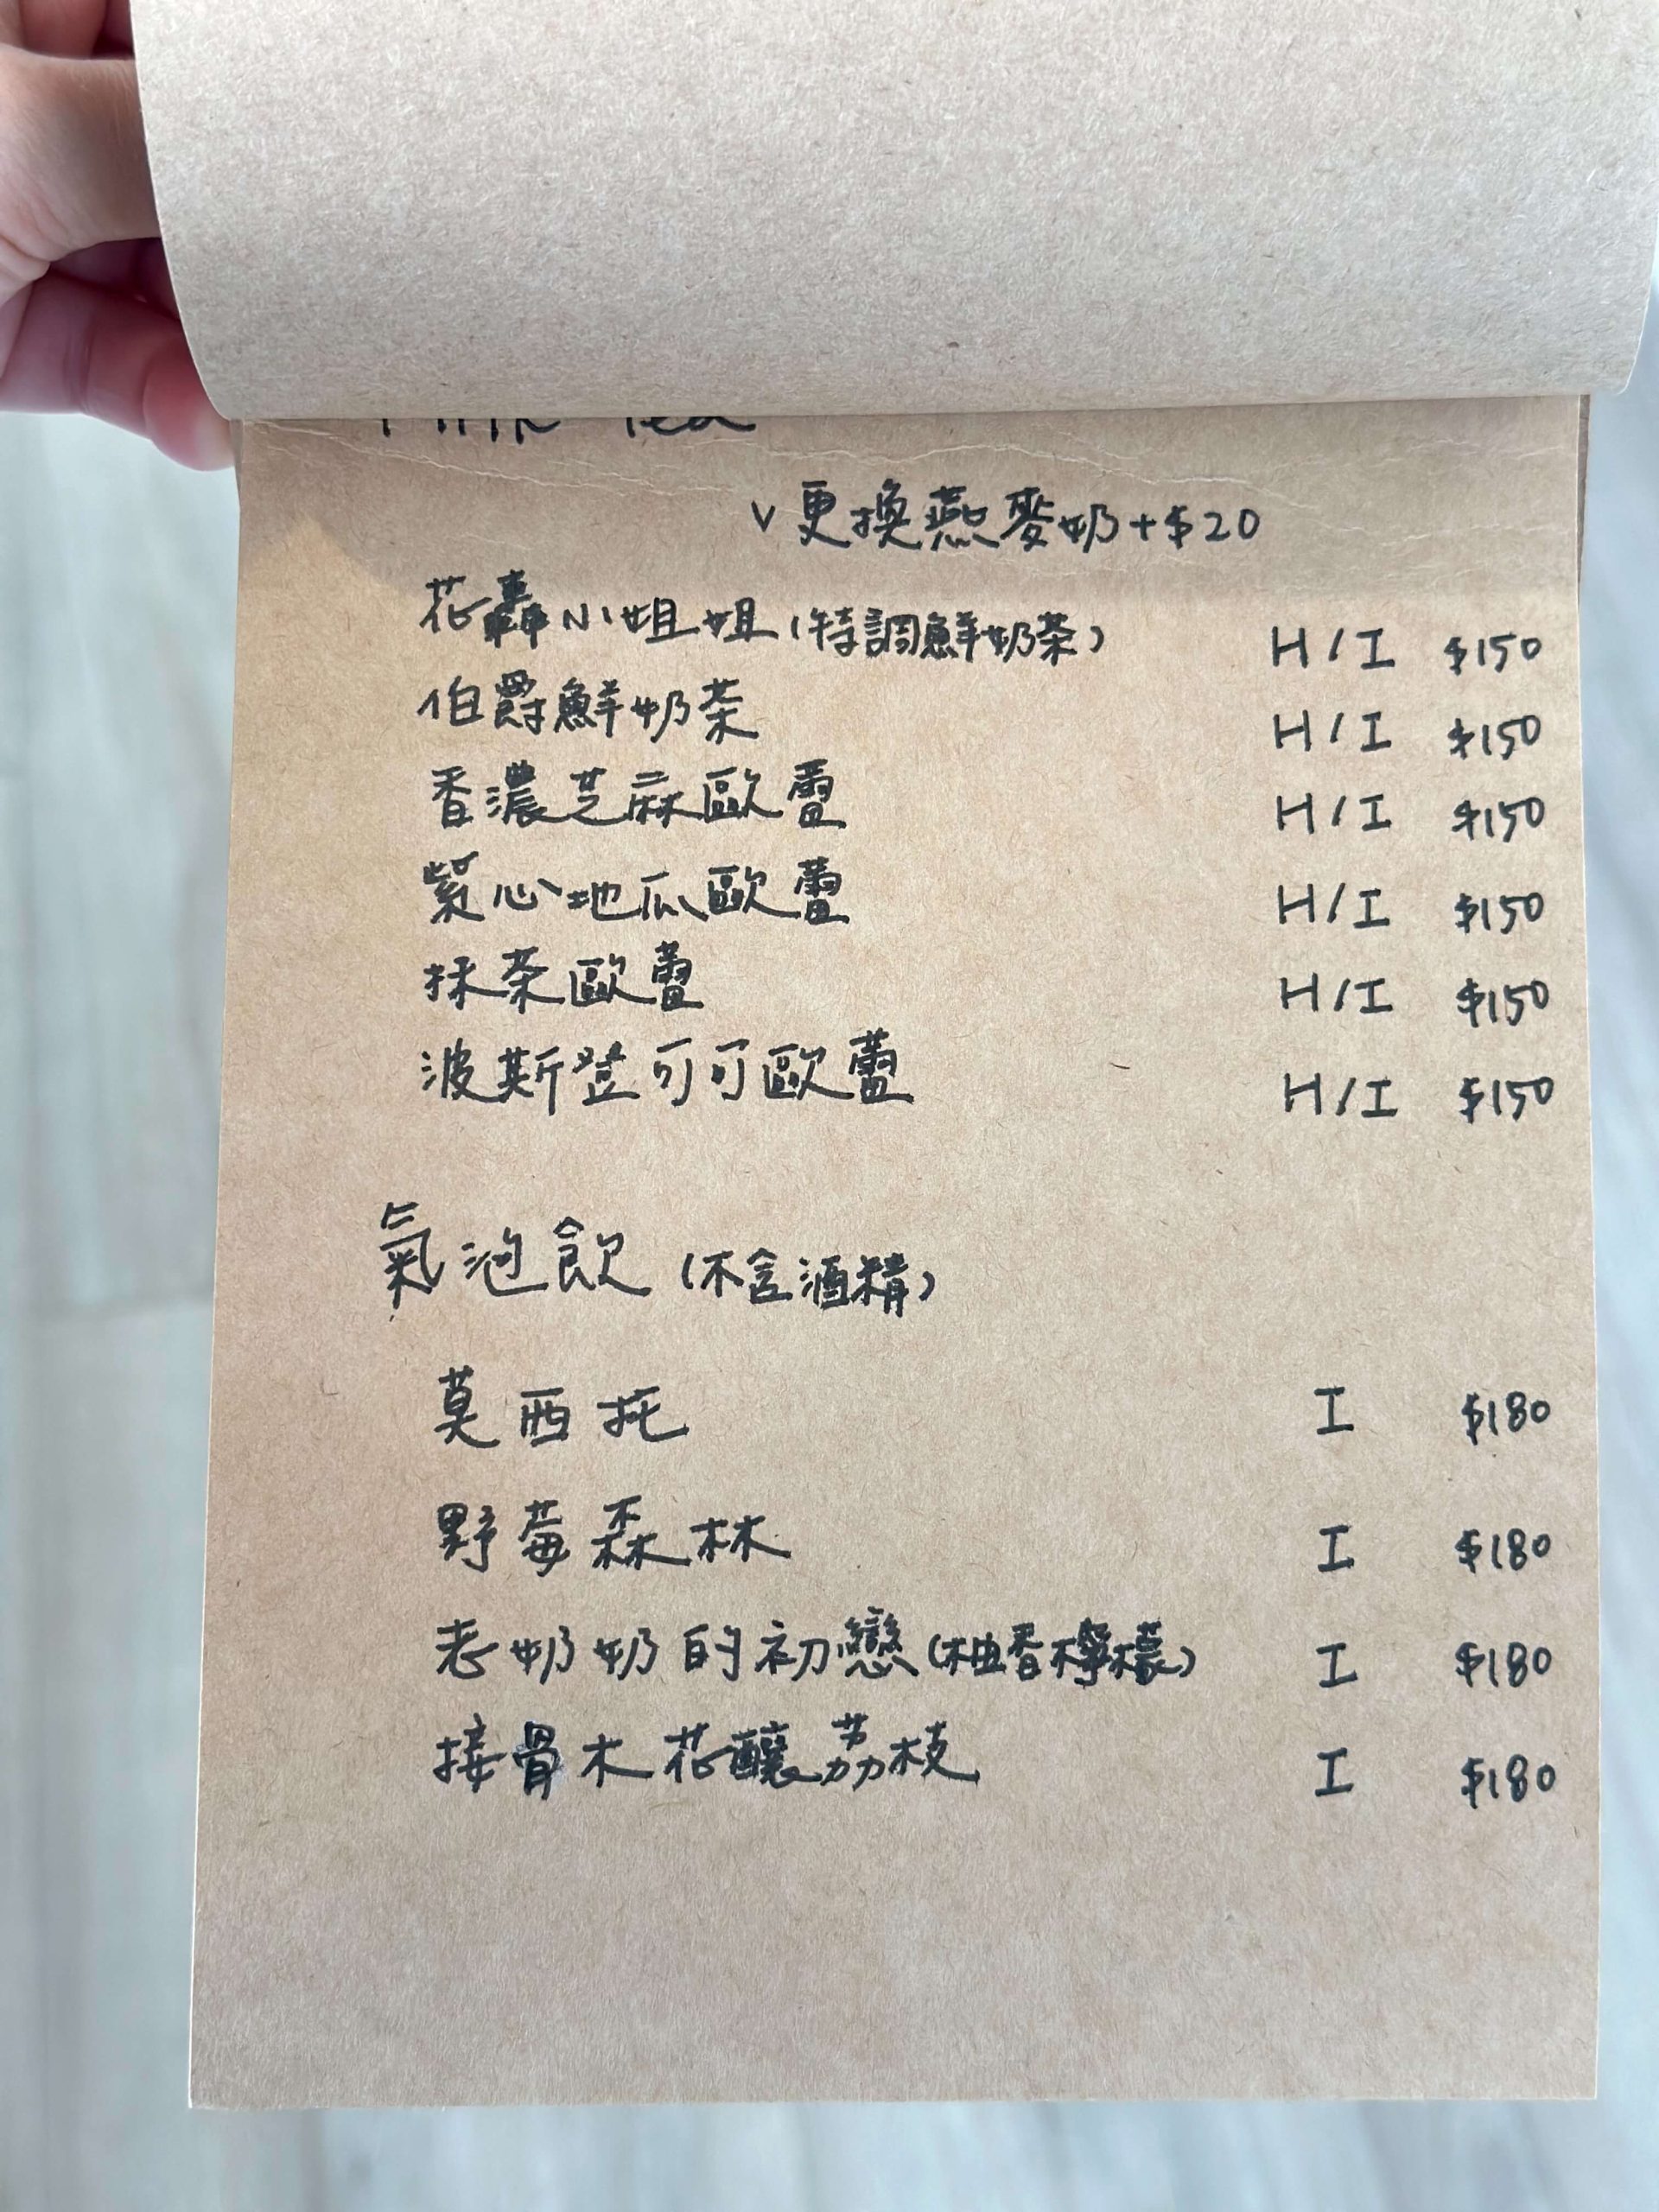 Milk Tea
v 更換燕麥奶+$20
花轟小姐姐(特調鮮奶茶) H/I $150
伯爵鮮奶茶 H/I $150
香濃芝麻歐蕾 H/I $150
紫心地瓜歐蕾 H/I $150
抹茶歐蕾 H/I $150
波斯登可可歐蕾 H/I $150
氣泡飲(不含酒精)
莫西托 I $180
野莓森林 I $180
老奶奶的初戀(柚香檸檬) I $180
接骨木花釀荔枝 I $180